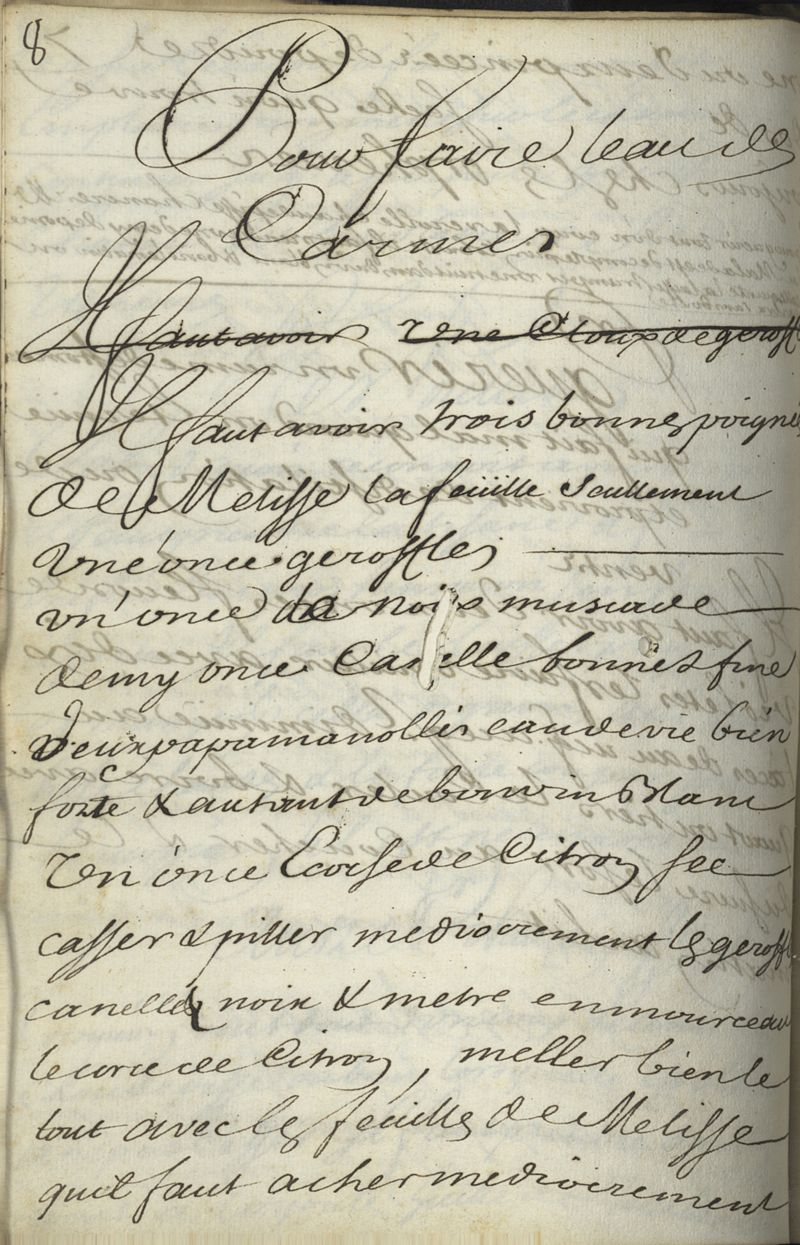 8
Pour faire leau des
Carmes
Il faut avoir une Cloux de geroffl
Il faut avoir trois bonnes poigné
de Melisse la feüille Seullement
vné once geroffles
vn' once de noix muscade
demy once Canelle bonne & fine
Deux papamanollis eau de vie bien
forte & autant de bon vin Blanc
vn once Ecorse de Citron sec
casser & piller mediocrement les geroffl
canelle noix & metre en mourceau
lecorce de Citron, meller bien le
tout avec les feuilles de Melisse
quil faut acher mediocrement